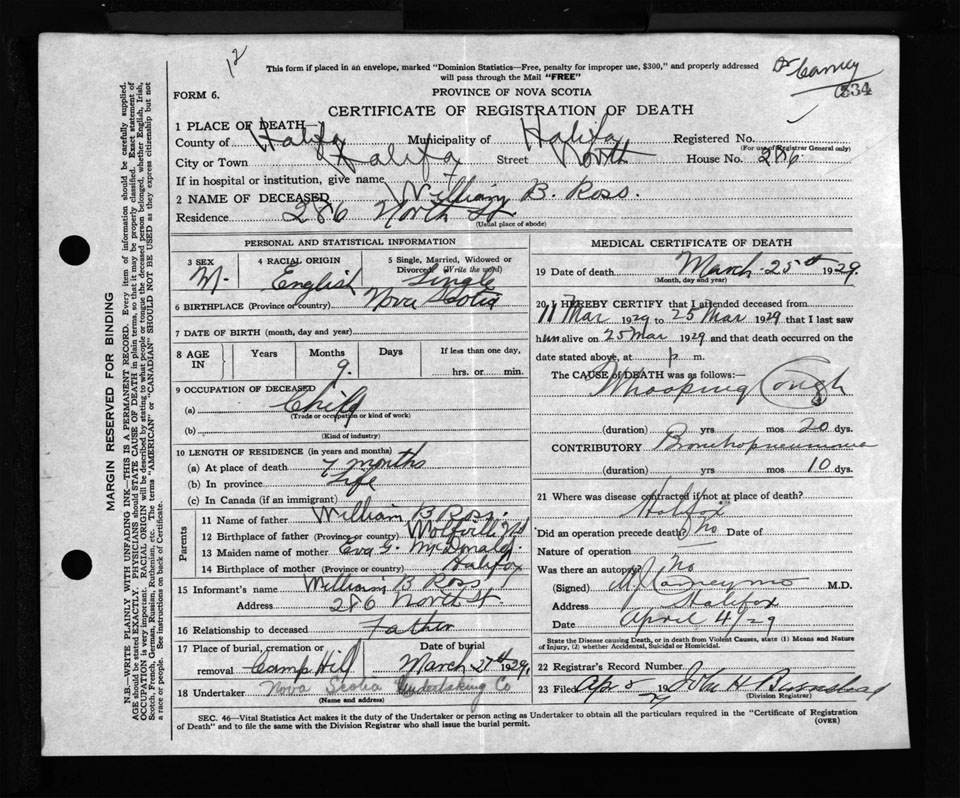 12
This form if placed in an envelope, marked "Dominion Statistics—Free, penalty for improper use, $300," and properly addressed
will pass through the Mail "FREE"
Dr Carney
334
FORM 6.
PROVINCE OF NOVA SCOTIA
CERTIFICATE OF REGISTRATION OF DEATH
1 PLACE OF DEATH—
County of Halifax Municipality of Halifax Registered No.
(For use of Registrar General only)
City or Town Halifax Street North House No. 286
If in hospital or institution, give name
2 NAME OF DECEASED William B. Ross.
Residence 286 North St
(Usual place of abode)
PERSONAL AND STATISTICAL INFORMATION
3 SEX M.
4 RACIAL ORIGIN English
5 Single, Married, Widowed or Divorced (Write the word) Single
6 BIRTHPLACE (Province or country) Nova Scotia
7 DATE OF BIRTH (month, day and year)
8 AGE IN Years Months 9. Days If less than one day, hrs. or min.
9 OCCUPATION OF DECEASED
(a) Child
(Trade or occupation or kind of work)
(b)
(Kind of industry)
10 LENGTH OF RESIDENCE (in years and months)
(a) At place of death 7 months
(b) In province Life
(c) In Canada (if an immigrant)
Parents
11 Name of father William B Ross.
12 Birthplace of father (Province or country) Wolfville NS
13 Maiden name of mother Eva G. McDonald.
14 Birthplace of mother (Province or country) Halifax
15 Informant's name William B Ross
Address 286 North St.
16 Relationship to deceased Father
17 Place of burial, cremation or removal Camp Hill Date of burial March 27th 1929,
18 Undertaker Nova Scotia Undertaking Co
(Name and address)
MEDICAL CERTIFICATE OF DEATH
19 Date of death March 25th 1929.
(Month, day and year)
20 I HEREBY CERTIFY that I attended deceased from
11 Mar 1929 to 25 Mar 1929 that I last saw
him alive on 25 Mar 1929 and that death occurred on the
date stated above, at p m.
The CAUSE of DEATH was as follows:
Whooping Cough
(duration) yrs mos 20 dys.
CONTRIBUTORY Bronchopneumonia
(duration) yrs mos 10 dys.
21 Where was disease contracted if not at place of death?
Halifax
Did an operation precede death? No Date of
Nature of operation
Was there an autopsy? No
(Signed) Carney MD M.D.
Address Halifax
Date April 4/29
State the Disease causing Death, or in death from Violent Causes, state (1) Means and Nature
of Injury, (2) whether Accidental, Suicidal or Homicidal.
22 Registrar's Record Number
23 Filed Apr 8 1929 John H
(Division Registrar)
SEC. 46—Vital Statistics Act makes it the duty of the Undertaker or person acting as Undertaker to obtain all the particulars required in the "Certificate of Registration
of Death" and to file the same with the Division Registrar who shall issue the burial permit.
(OVER)
MARGIN RESERVED FOR BINDING
N.B.—WRITE PLAINLY WITH UNFADING INK—THIS IS A PERMANENT RECORD. Every item of information should be carefully supplied.
AGE should be stated EXACTLY. PHYSICIANS should STATE CAUSE OF DEATH in plain terms, so that it may be properly classified. Exact statement of
OCCUPATION is very important. RACIAL ORIGIN will be described by stating to what people or tongue the deceased person belonged, whether English, Irish,
Scotch, French, German, Russian, Ruthenian, etc. The terms "AMERICAN" or "CANADIAN" SHOULD NOT BE USED as they express citizenship but not
a race or people. See instructions on back of Certificate.